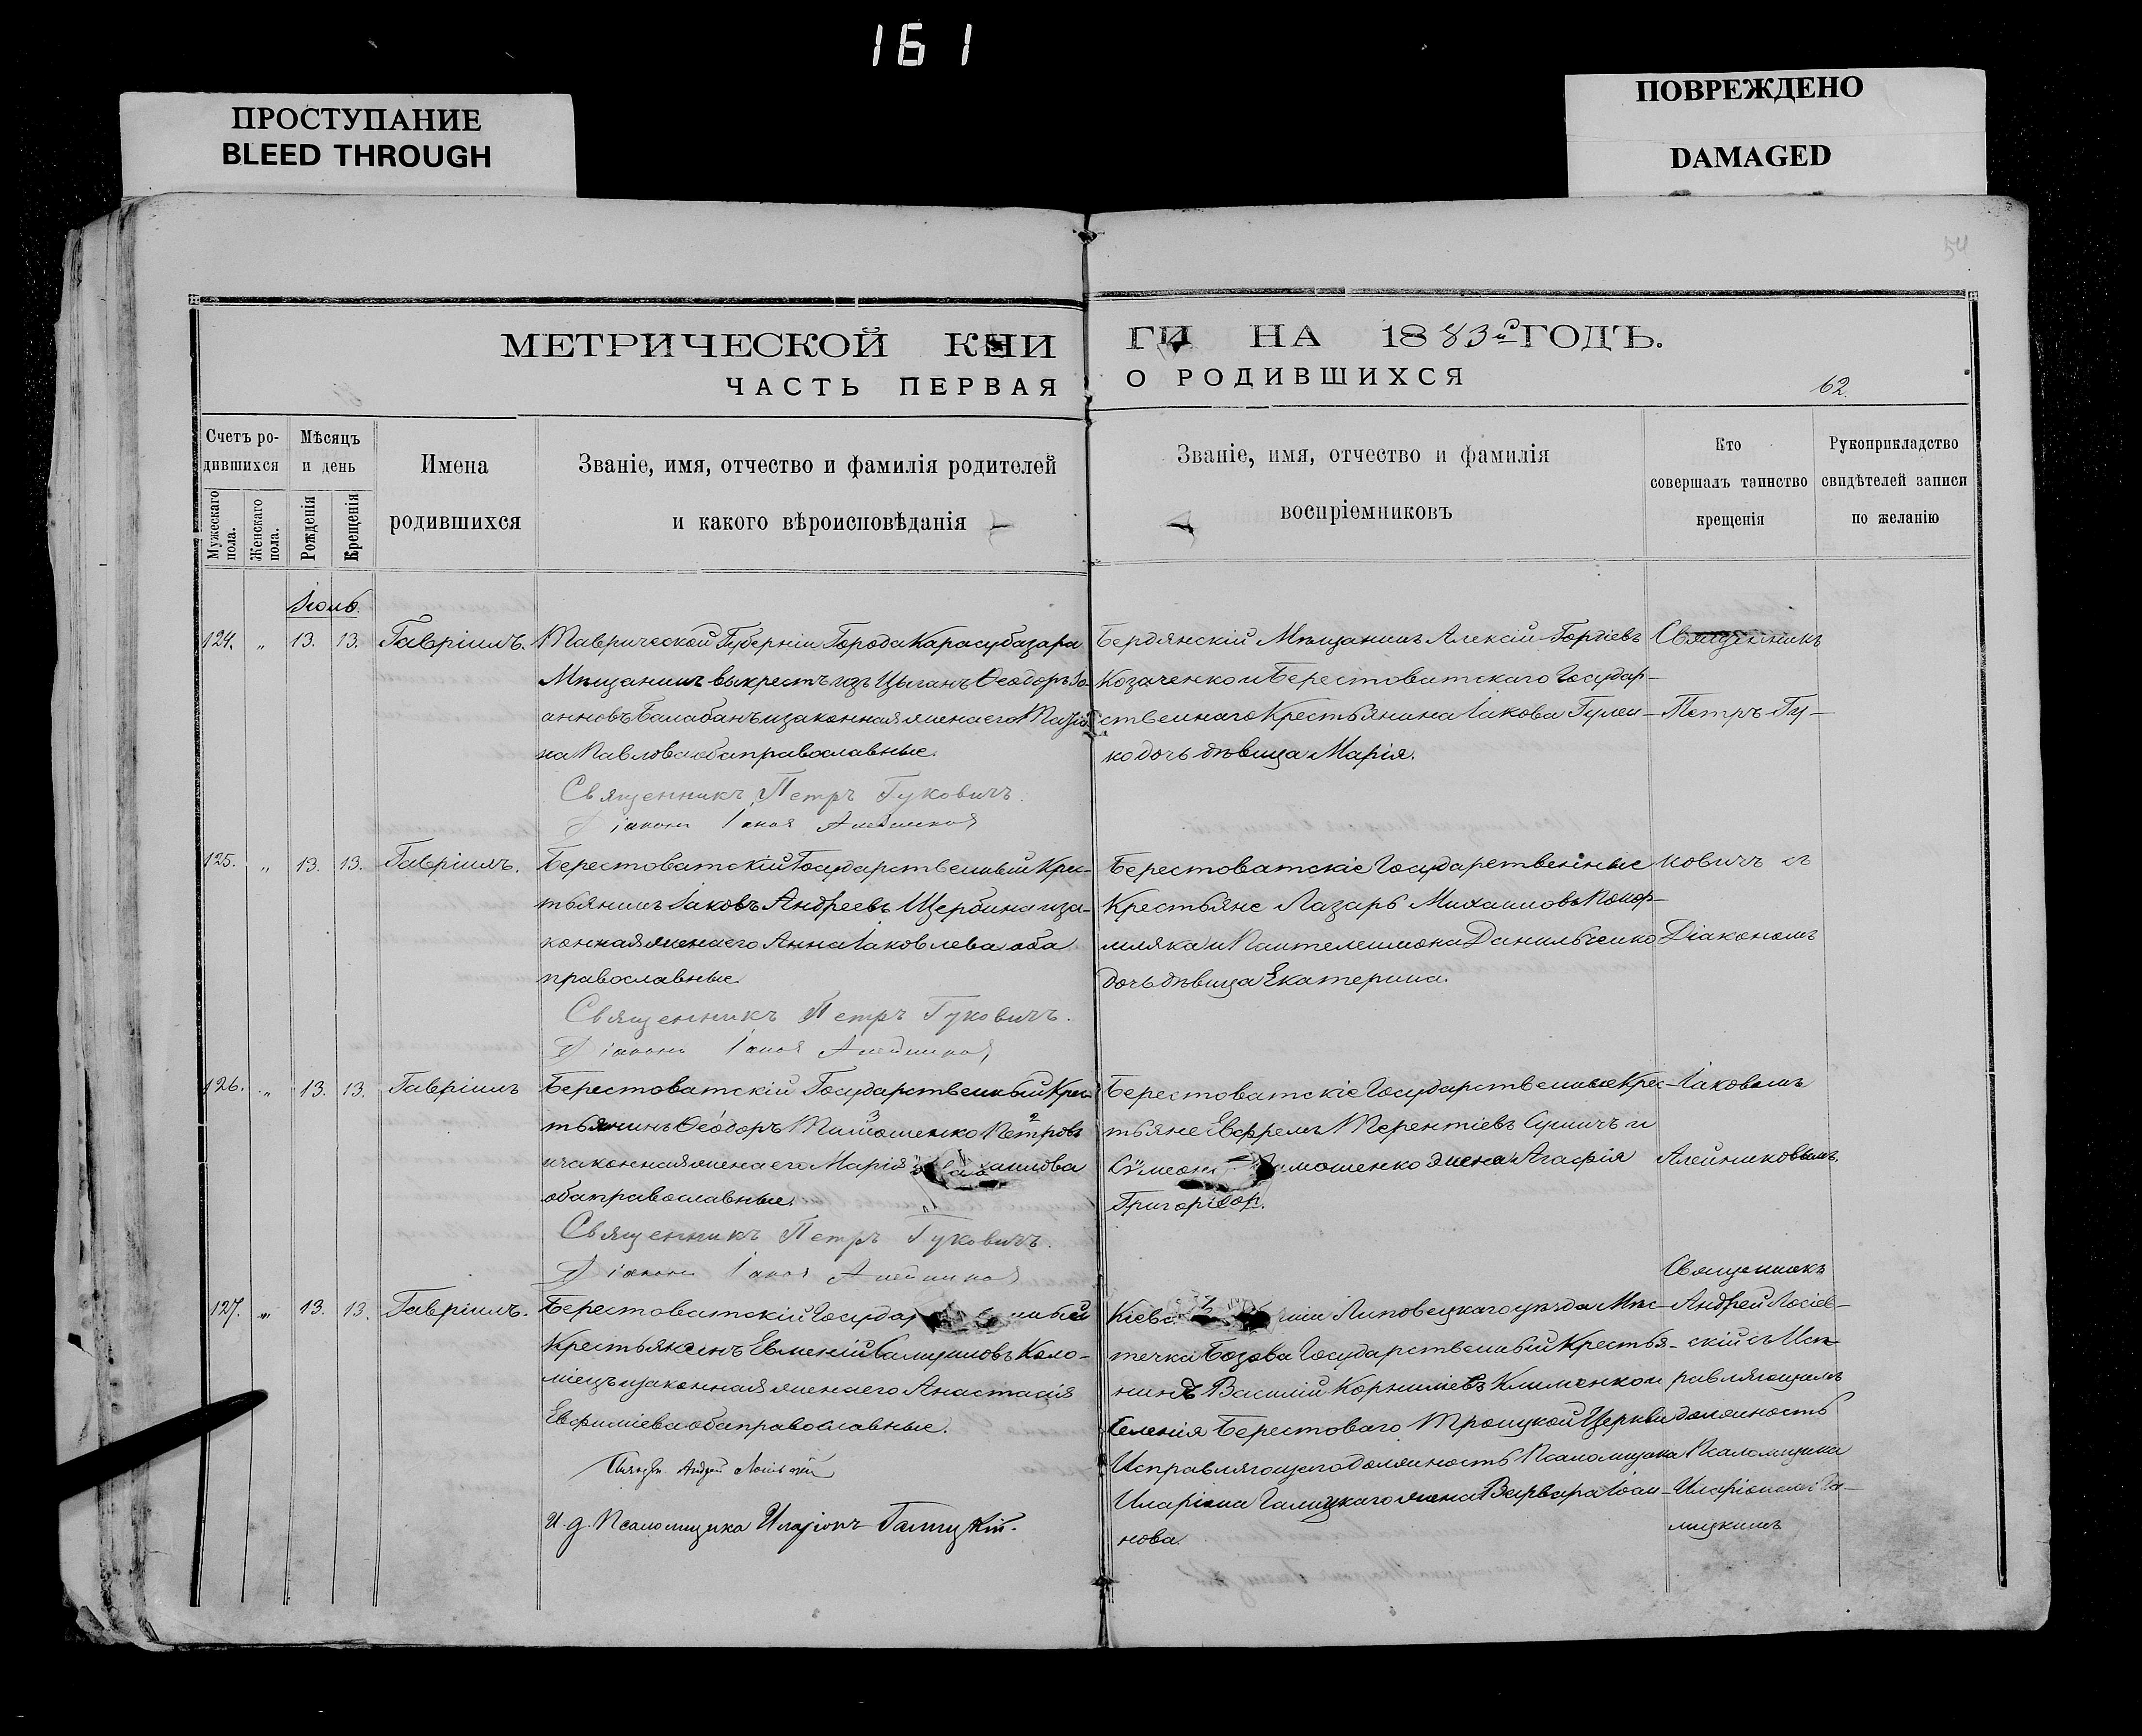 161
ПРОСТУПАНИЕ
BLEED THROUGH
ПОВРЕЖДЕНО
DAMAGED
54
МЕТРИЧЕСКОЙ КНИ
ГИ НА 1883й ГОДЪ.
ЧАСТЬ ПЕРВАЯ
О РОДИВШИХСЯ
62.
Счетъ ро-
дившихся
Мужескаго пола.
Женскаго пола.
Мѣсяцъ
и день
Рожденія
Крещенія
Имена
родившихся
Званіе, имя, отчество и фамилія родителей
и какого вѣроисповѣданія
Званіе, имя, отчество и фамилія
воспріемниковъ
Кто
совершалъ таинство
крещенія
Рукоприкладство
свидѣтелей записи
по желанію
124. „ 13. 13. Гавріилъ.
Таврической Губерніи Города Карасубазара
Мѣщанинъ выкрестъ изъ Цыганъ Ѳеодоръ Іо-
анновъ Балабанъ и законная жена его
на Павлова оба православные.
Священникъ Петръ Гуковичъ.
Діаконъ Іаковъ Алейников
Бердянскій Мѣщанинъ Алексій Гордіевъ
Козаченко и Берестоватскаго Государ-
ственнаго Крестьянина Іакова Гулен-
ко дочь дѣвица Марія.
Священникъ
Петръ Гу-
125. „ 13. 13. Гавріилъ.
Берестоватскій Государственный Крес-
тьянинъ Іаковъ Андреевъ Щербина и за-
конная жена его Анна Іаковлева оба
православные
Священникъ Петръ Гуковичъ.
Діаконъ Іаковъ Алейников
Берестоватскіе Государственные
Крестьяне Лазарь Михаиловъ
и Пантелеимона Данильченко
дочь дѣвица Екатерина.
ковичъ съ
Діакономъ
126. „ 13. 13. Гавріилъ
Берестоватскій Государственный Крес-
тьянинъ Ѳеодоръ Тимошенко 3 Петровъ 2
и законная жена его Марія
оба православные.
Священникъ Петръ Гуковичъ.
Діаконъ Іаковъ Алейников
Берестоватскіе Государственные Крес-
тьяне Ефремъ Терентіевъ и
Сѵмеона Тимошенко жена Агафія
Григорьева.
Іаковомъ
Алейниковымъ.
127. „ 13. 13. Гавріилъ.
Берестоватскій Государственный
Крестьянинъ Евменій Самуиловъ Коло-
міецъ и законная жена его Анастасія
Евфиміева оба православные.
Священ. Андрей Лосіевскій
И. д. Псаломщика Иларіонъ Галицкій.
Липовецкаго уѣзда Мѣс-
течка Государственный Крестья-
нинъ Василій Корниліевъ Клименко и
Селенія Берестоваго Троицкой Церкви
Исправляющаго должность Псаломщика
Иларіона Галицкаго жена Варвара Іоан-
нова.
Священникъ
Андрей Лосіев-
скій съ Исп-
равляющимъ
должность
Псаломщика
Иларіономъ Га-
лицкимъ